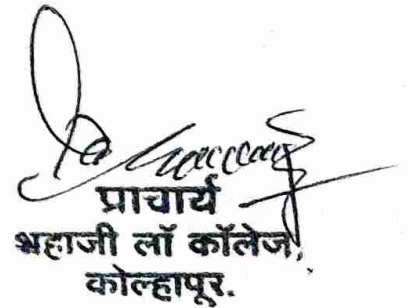 प्राचार्य
भहाजी लॉ कॉलेज,
कोल्हापूर.